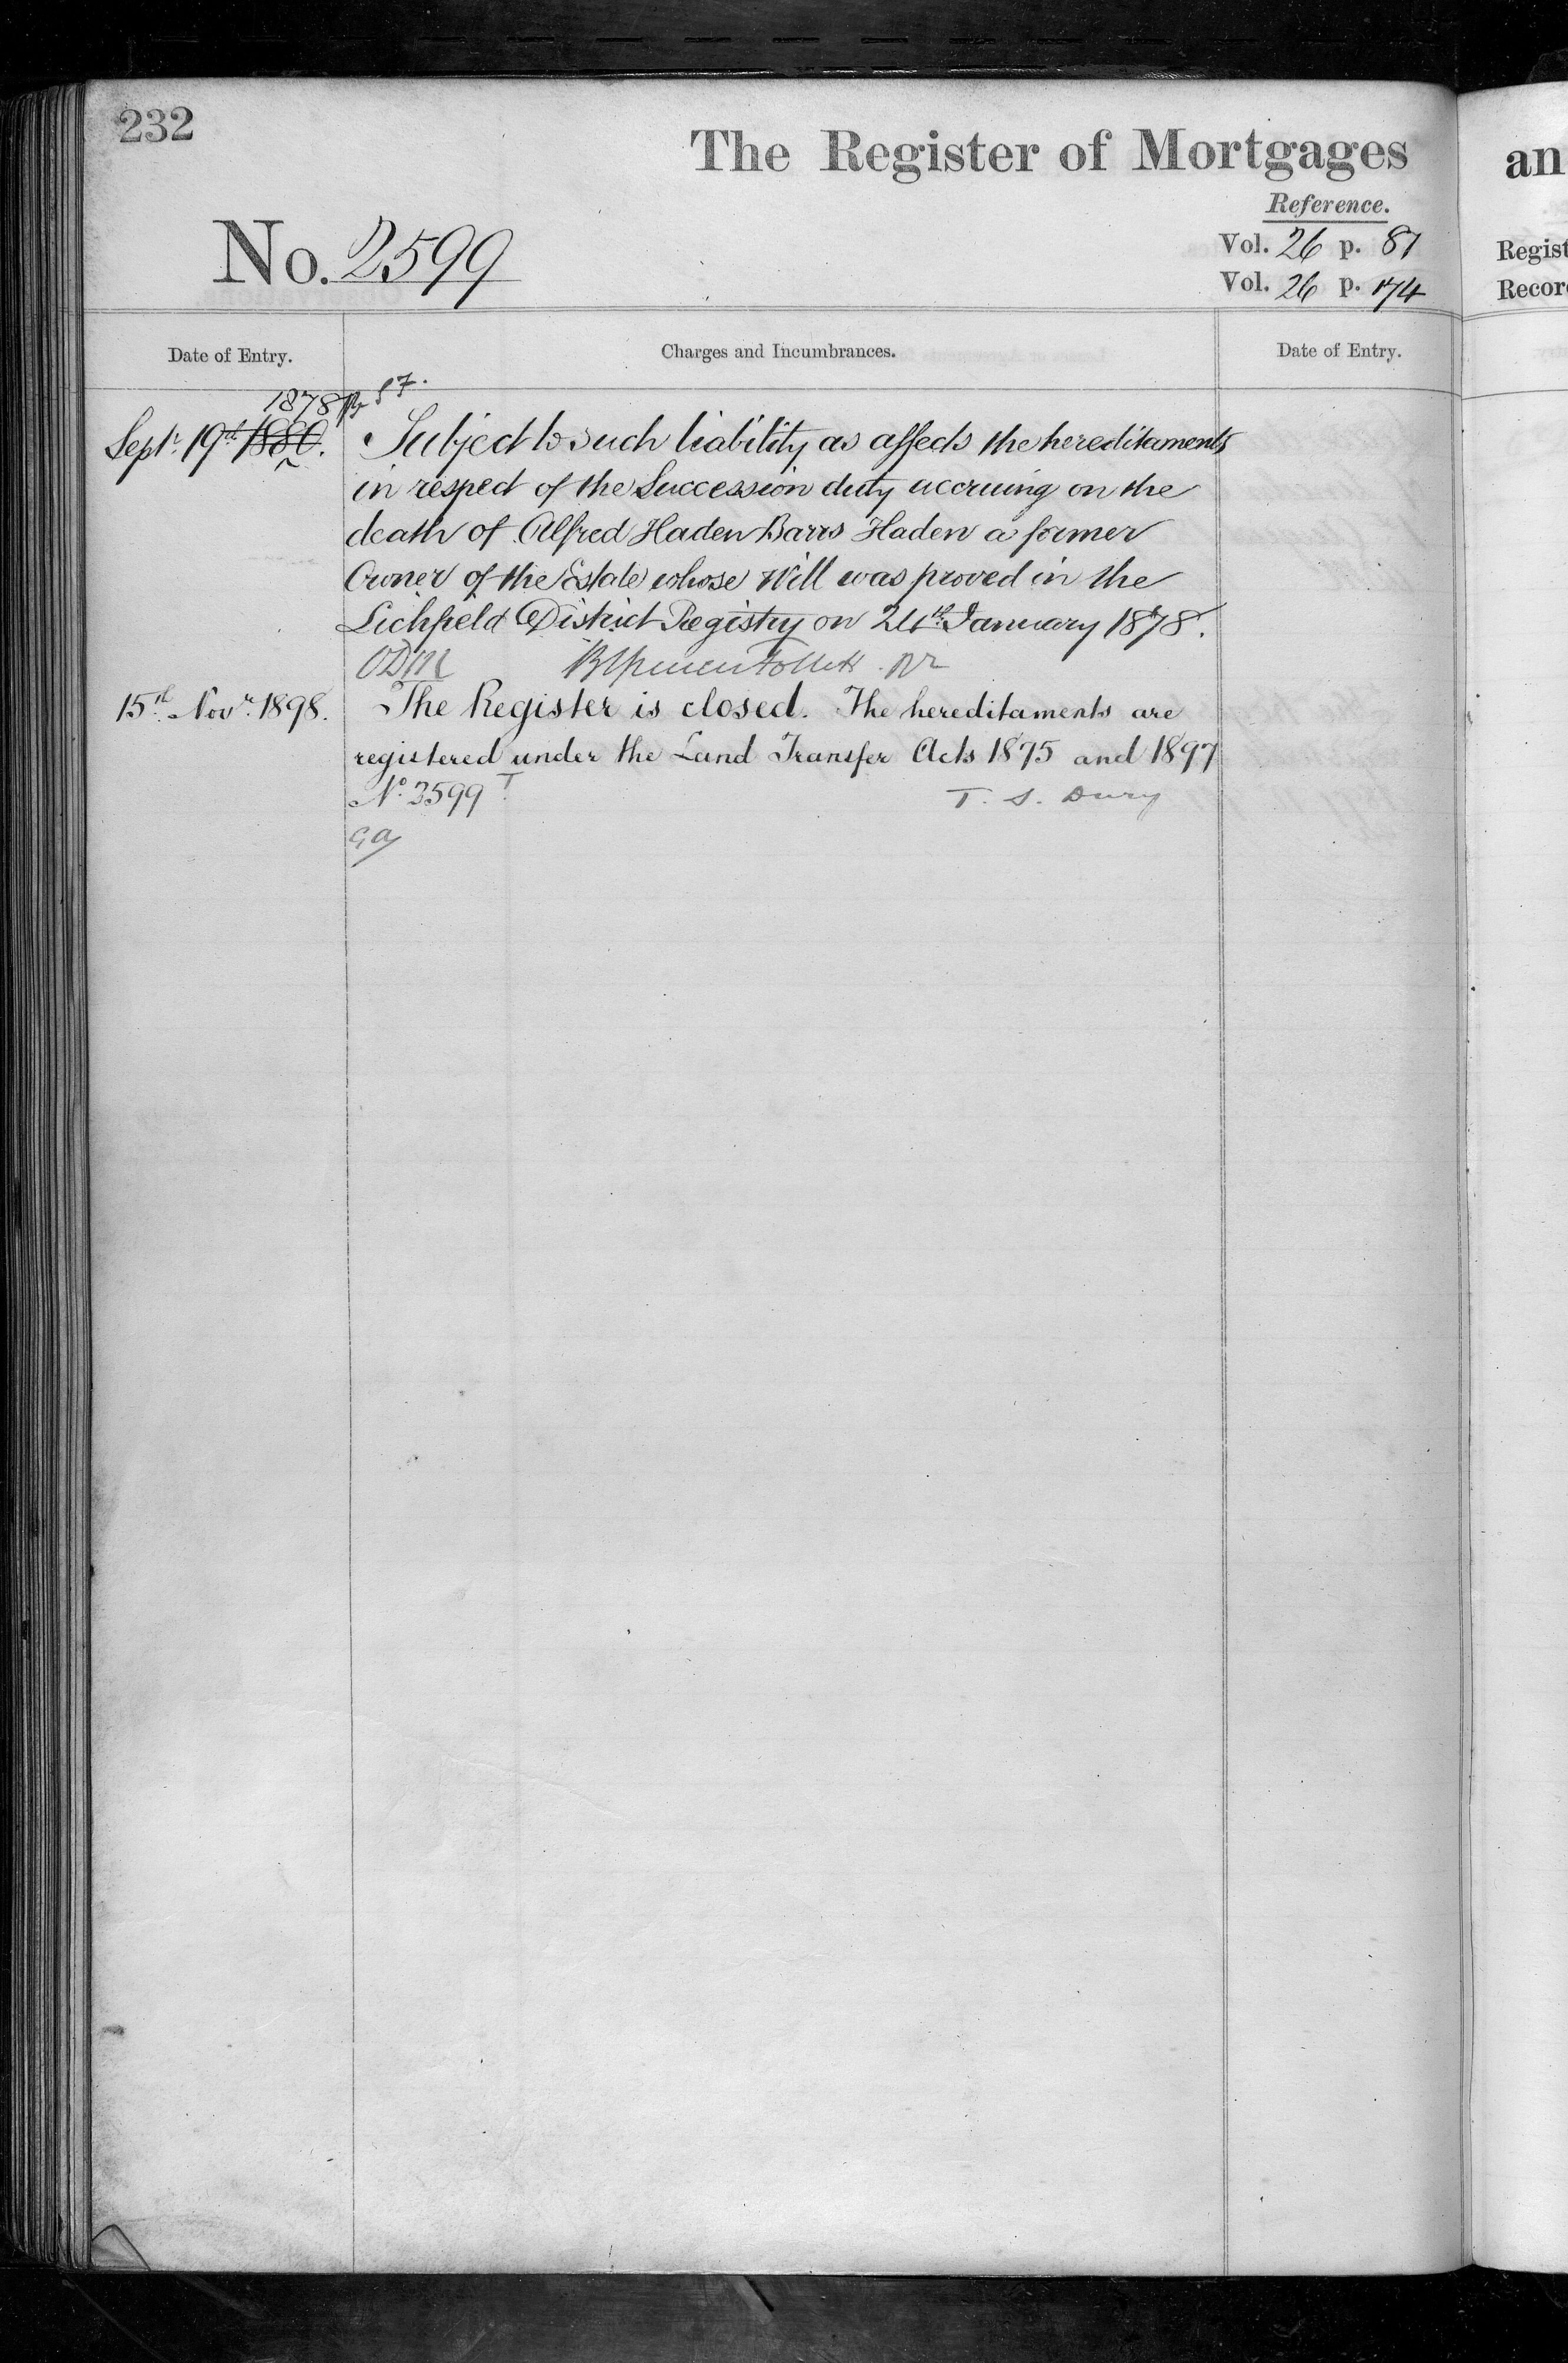 232
The Register of Mortgages
an
Reference.
Vol. 26 p. 81
Vol. 26 p. 174
No. 2599
Regist
Recor
Date of Entry.
Charges and Incumbrances.
Date of Entry.
1878
Septr. 19th 1880.
Subject to such liability as affects the hereditaments
in respect of the Succession duty accruing on the
death of Alfred Haden Barrs Haden a former
Owner of the Estate whose Will was proved in the
Lichfield District Registry on 24th January 1878.
ODM
15th Novr. 1898.
The Register is closed. The hereditaments are
registered under the Land Transfer Acts 1875 and 1897
No. 3599 T.
T. S. Dury